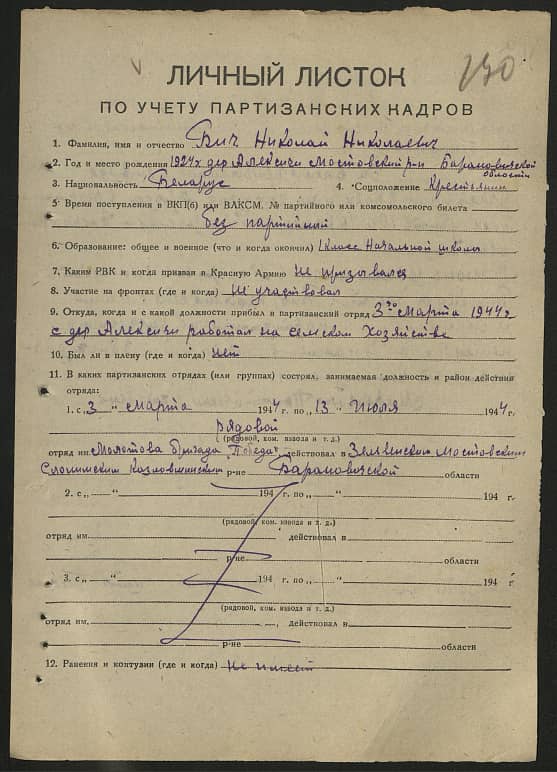 130
ЛИЧНЫЙ ЛИСТОК
ПО УЧЕТУ ПАРТИЗАНСКИХ КАДРОВ
1. Фамилия, имя и отчество Бич Николай Николаевич
2. Год и место рождения 1924г дер Алексичи Мостовский р-н Барановической
области
3. Национальность Беларус 4. Соцположение Крестьянин
5. Время поступления в ВКП(б) или ВЛКСМ, № партийного или комсомольского билета
без партийный
6. Образование: общее и военное (что и когда окончил) 1 класс Начальной школы
7. Каким РВК и когда призван в Красную Армию Не призывался
8. Участие на фронтах (где и когда) Не участвовал
9. Откуда, когда и с какой должности прибыл в партизанский отряд 3го Марта 1944г
с дер Алексичи работал на сельском Хозяйстве
10. Был ли в плену (где и когда) нет
11. В каких партизанских отрядах (или группах) состоял, занимаемая должность и район действия
отряда:
1. с „3 “ марта 1944 г. по „13 “ Июля 1944 г.
Рядовой
(рядовой, ком. взвода и т. д.)
отряд им Молотова бригада "Победа" действовал в Зельвенским Мостовским
Слонимским Козловшинским р-не Барановической области
2. с „ “ 194 г. по „ “ 194 г.
(рядовой, ком. взвода и т. д.)
отряд им. действовал в
р-не области
3. с „ “ 194 г. по „ “ 194 г.
(рядовой, ком. взвода и т. д.)
отряд им. действовал в
р-не области
12. Ранения и контузии (где и когда) Не имеет